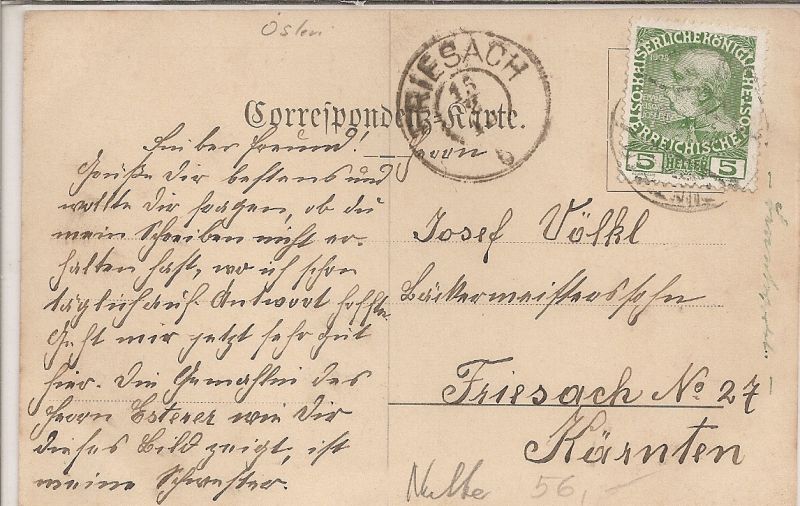 Östen
FRIESACH
15
6
KAISERLICHE KÖNIGLICHE
ÖSTERREICHISCHE
5 HELLER 5
Correspondenz-Karte.
Herrn
Lieber Freund!
Grüße Dir bestens und
wollte Dir fragen, ob du
mein Schreiben nicht er-
halten hast, wo ich schon
täglich auf Antwort hoffte.
Geht mir jetzt sehr gut
hier. Die Gemahlin des
Herrn Esterer wie Dir
dieses Bild zeigt, ist
meine Schwester.
Josef Völkl
Bäckermeisterssohn
Friesach No 27
Kärnten
56,-